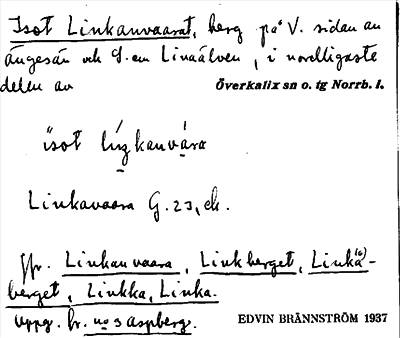 Isot Linkanvaarat, berg på V. sidan av
ängesån och g. om Linaälven, i nordligaste
delen av Överkalix sn o. tg Norrb. l.
isot lıŋkanvāra
Linkavaara G. 23, ek.
Jfr. Linkanvaara, Linkberget, Linka(n)-
berget, Linkka, Linka.
Uppg. br. no 3 aspberg.
EDVIN BRÄNNSTRÖM 1937